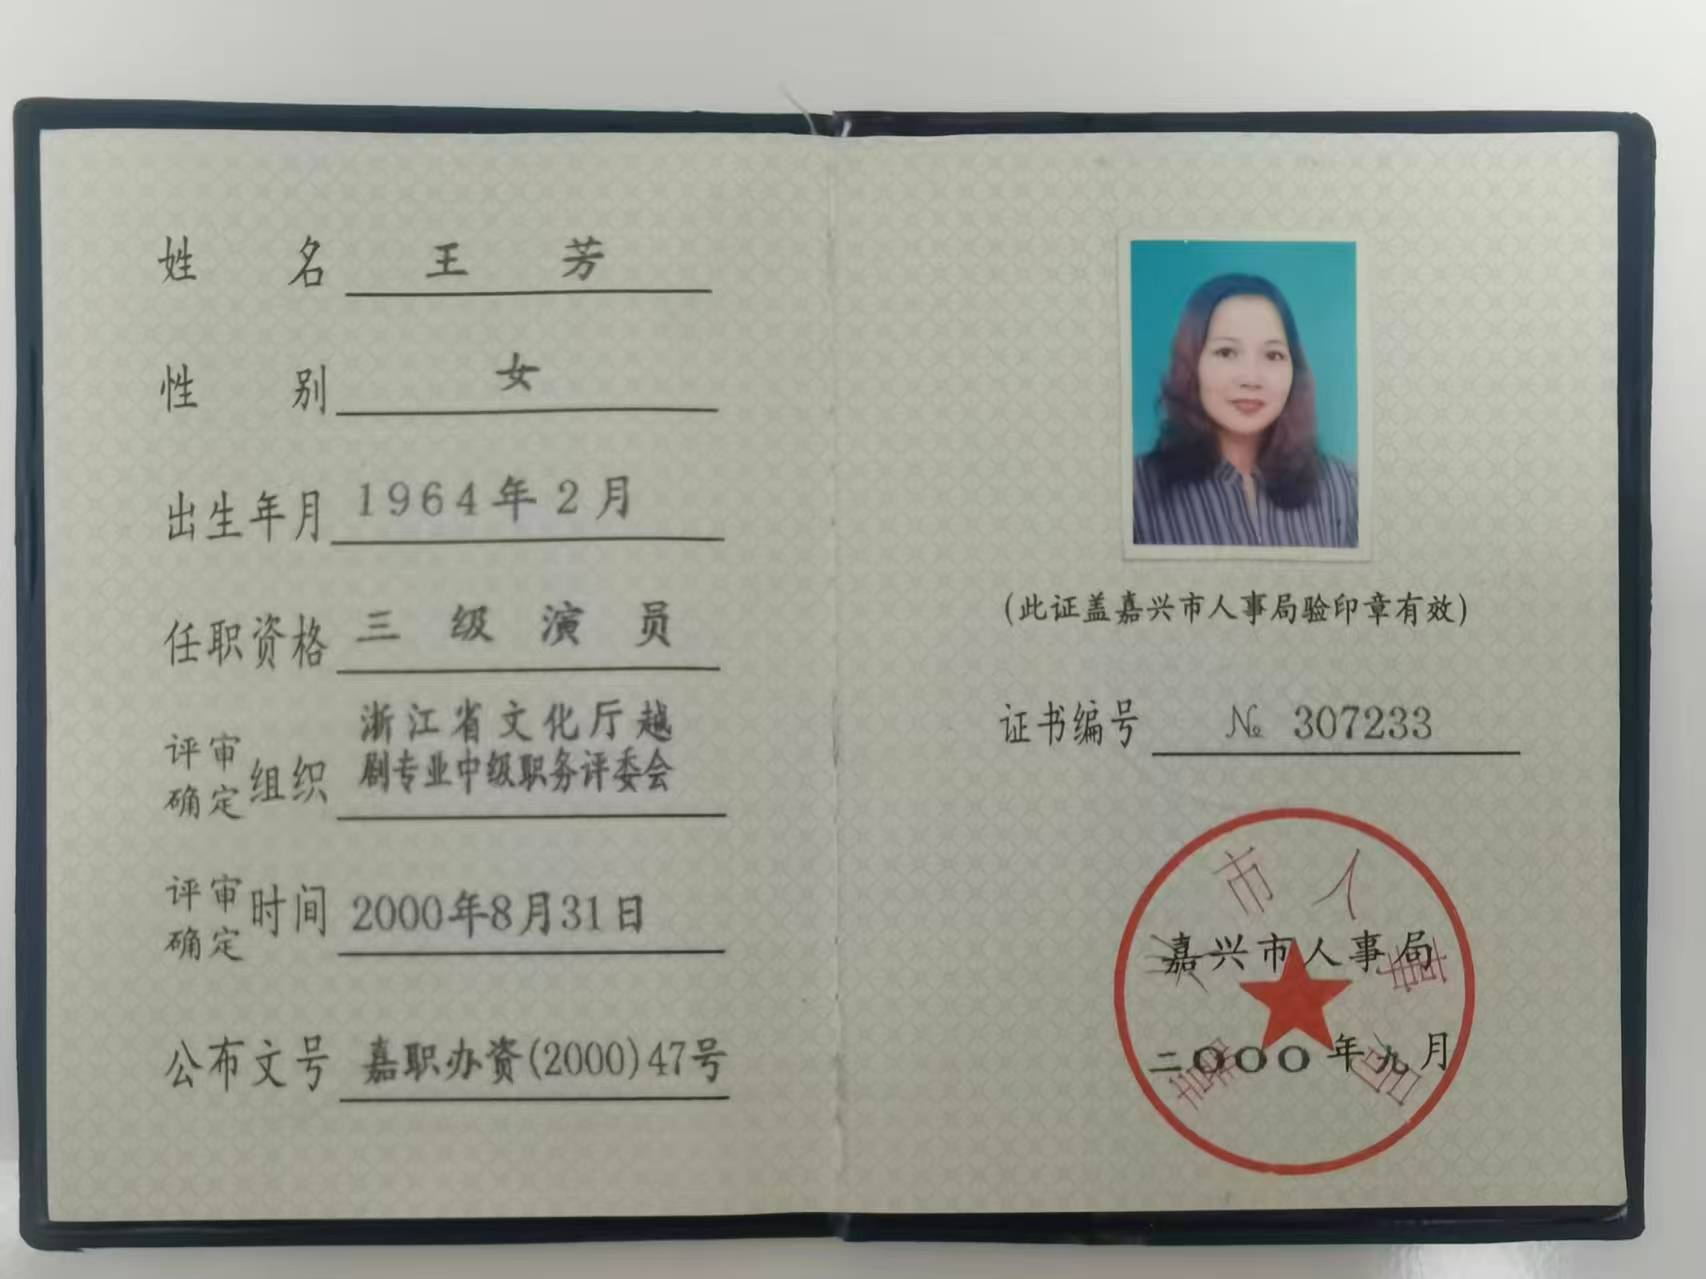 姓名 王芳
性别 女
出生年月 1964年2月
任职资格 三级演员
评审确定组织 浙江省文化厅越
剧专业中级职务评委会
评审确定时间 2000年8月31日
公布文号 嘉职办资(2000)47号
(此证盖嘉兴市人事局验印章有效)
证书编号 № 307233
嘉兴市人事局
二〇〇〇年九月
嘉兴市人事局